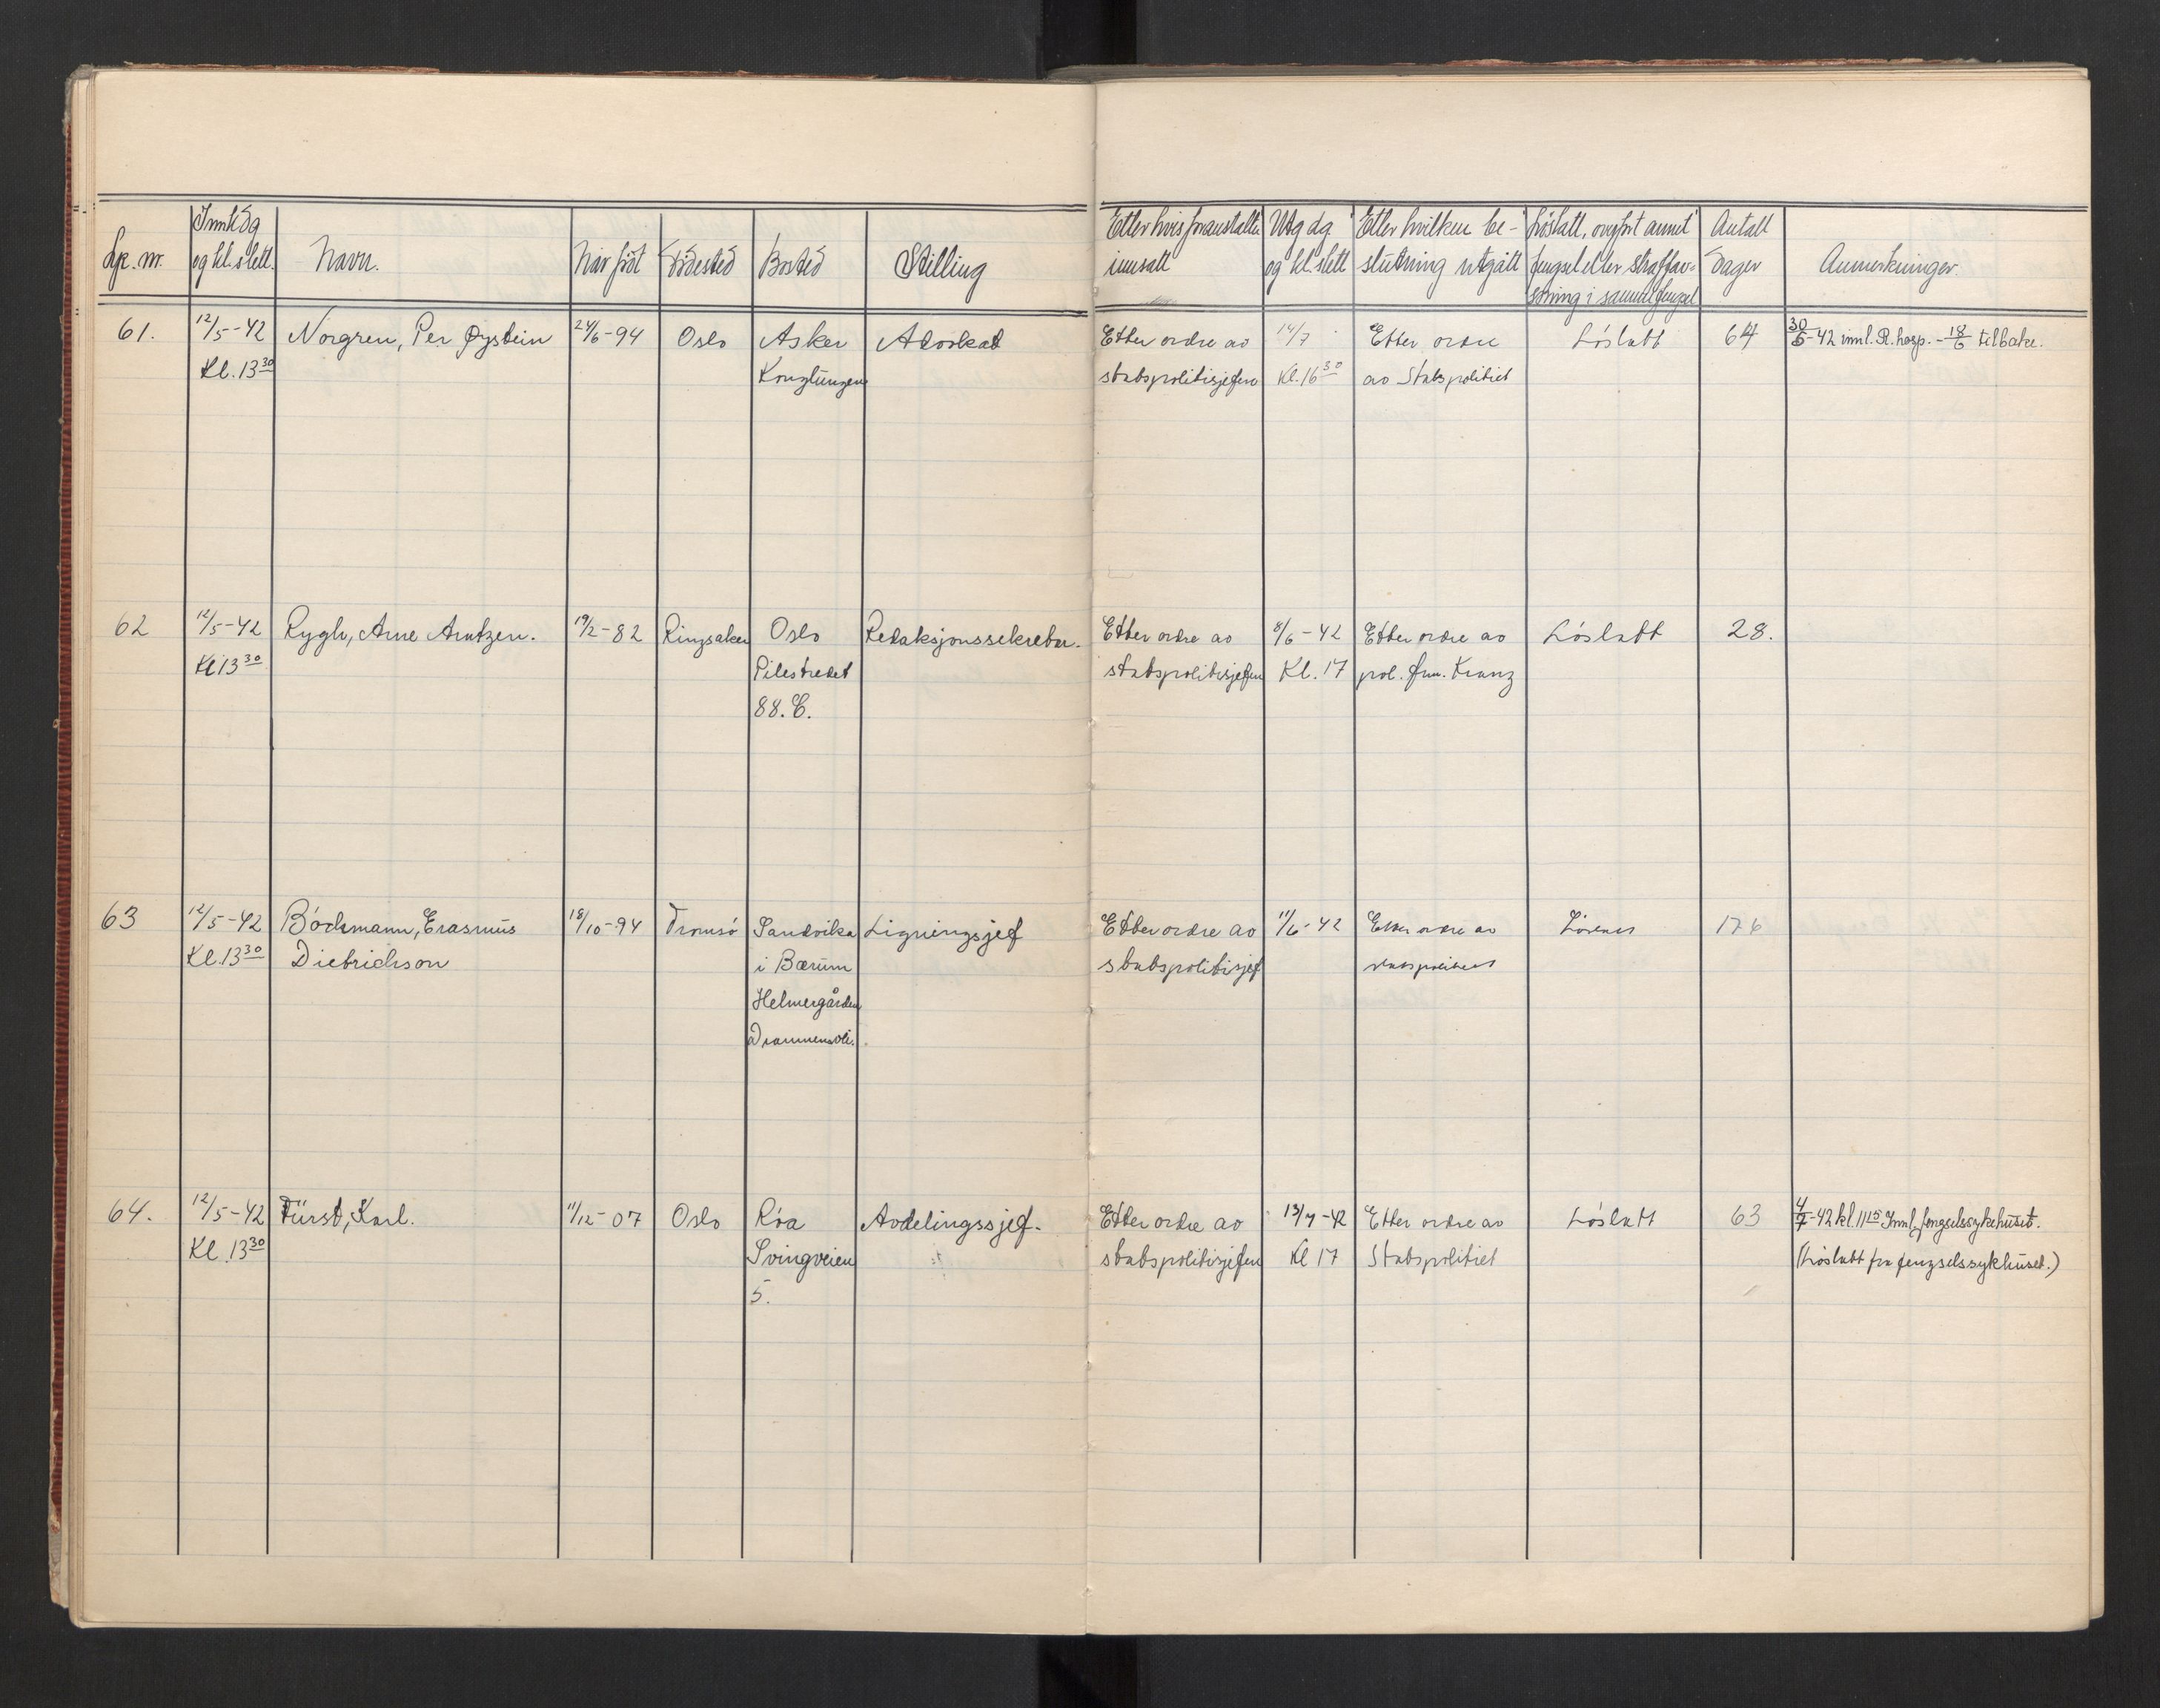 Lp. nr.
Innk. dag og kl. slett.
Navn.
Når föt
Födested
Bosted
Stilling
Etter hvis foranstaltn. innsatt
Utg dag og kl. slett
Etter hvilken be-
slutning utgått
Löslatt, overfört annet
fengsel eller straffav-
soning i samme fengsel
Antall
Dager
Anmerkninger.
61.
12/5-42
Kl. 13 30
Norgren, Per Øystein
24/6-94
Oslo
Asker
Konglungen
Advokat
Etter ordre av
statspolitisjefen
14/7
Kl. 16 30
Etter ordre
av Statspolitiet
Löslatt
64
30/5-42 innl. R. hosp. - 18/6 tilbake.
62
12/5-42
Kl 13 30
Rygh, Arne Arntzen.
19/2-82
Ringsaker
Oslo
Pilestredet
88. C.
Redaksjonssekretær.
Etter ordre av
statspolitisjefen
8/6-42
Kl. 17
Etter ordre av
pol. fm. Kranz
Löslatt
28.
63
12/5-42
Kl. 13 30
Böckmann, Erasmus
Dietrichson
18/10-94
Tromsö
Sandvika
i Bærum
Helmergården
Drammensvei.
Ligningsjef
Etter ordre av
statspolitisjef
11/6-42
Etter ordre av
statspolitiet
176
64.
12/5-42
Kl. 13 30
Fürst, Karl.
11/12-07
Oslo
Röa
Svingveien
5.
Avdelingssjef.
Etter ordre av
statspolitisjefen
13/7-42
Kl 17
Etter ordre av
Statspolitiet
Löslatt
63
4/7-42 kl. 11 15 Innl. fengselssykehuset.
(Löslatt fra fengselssykhuset.)